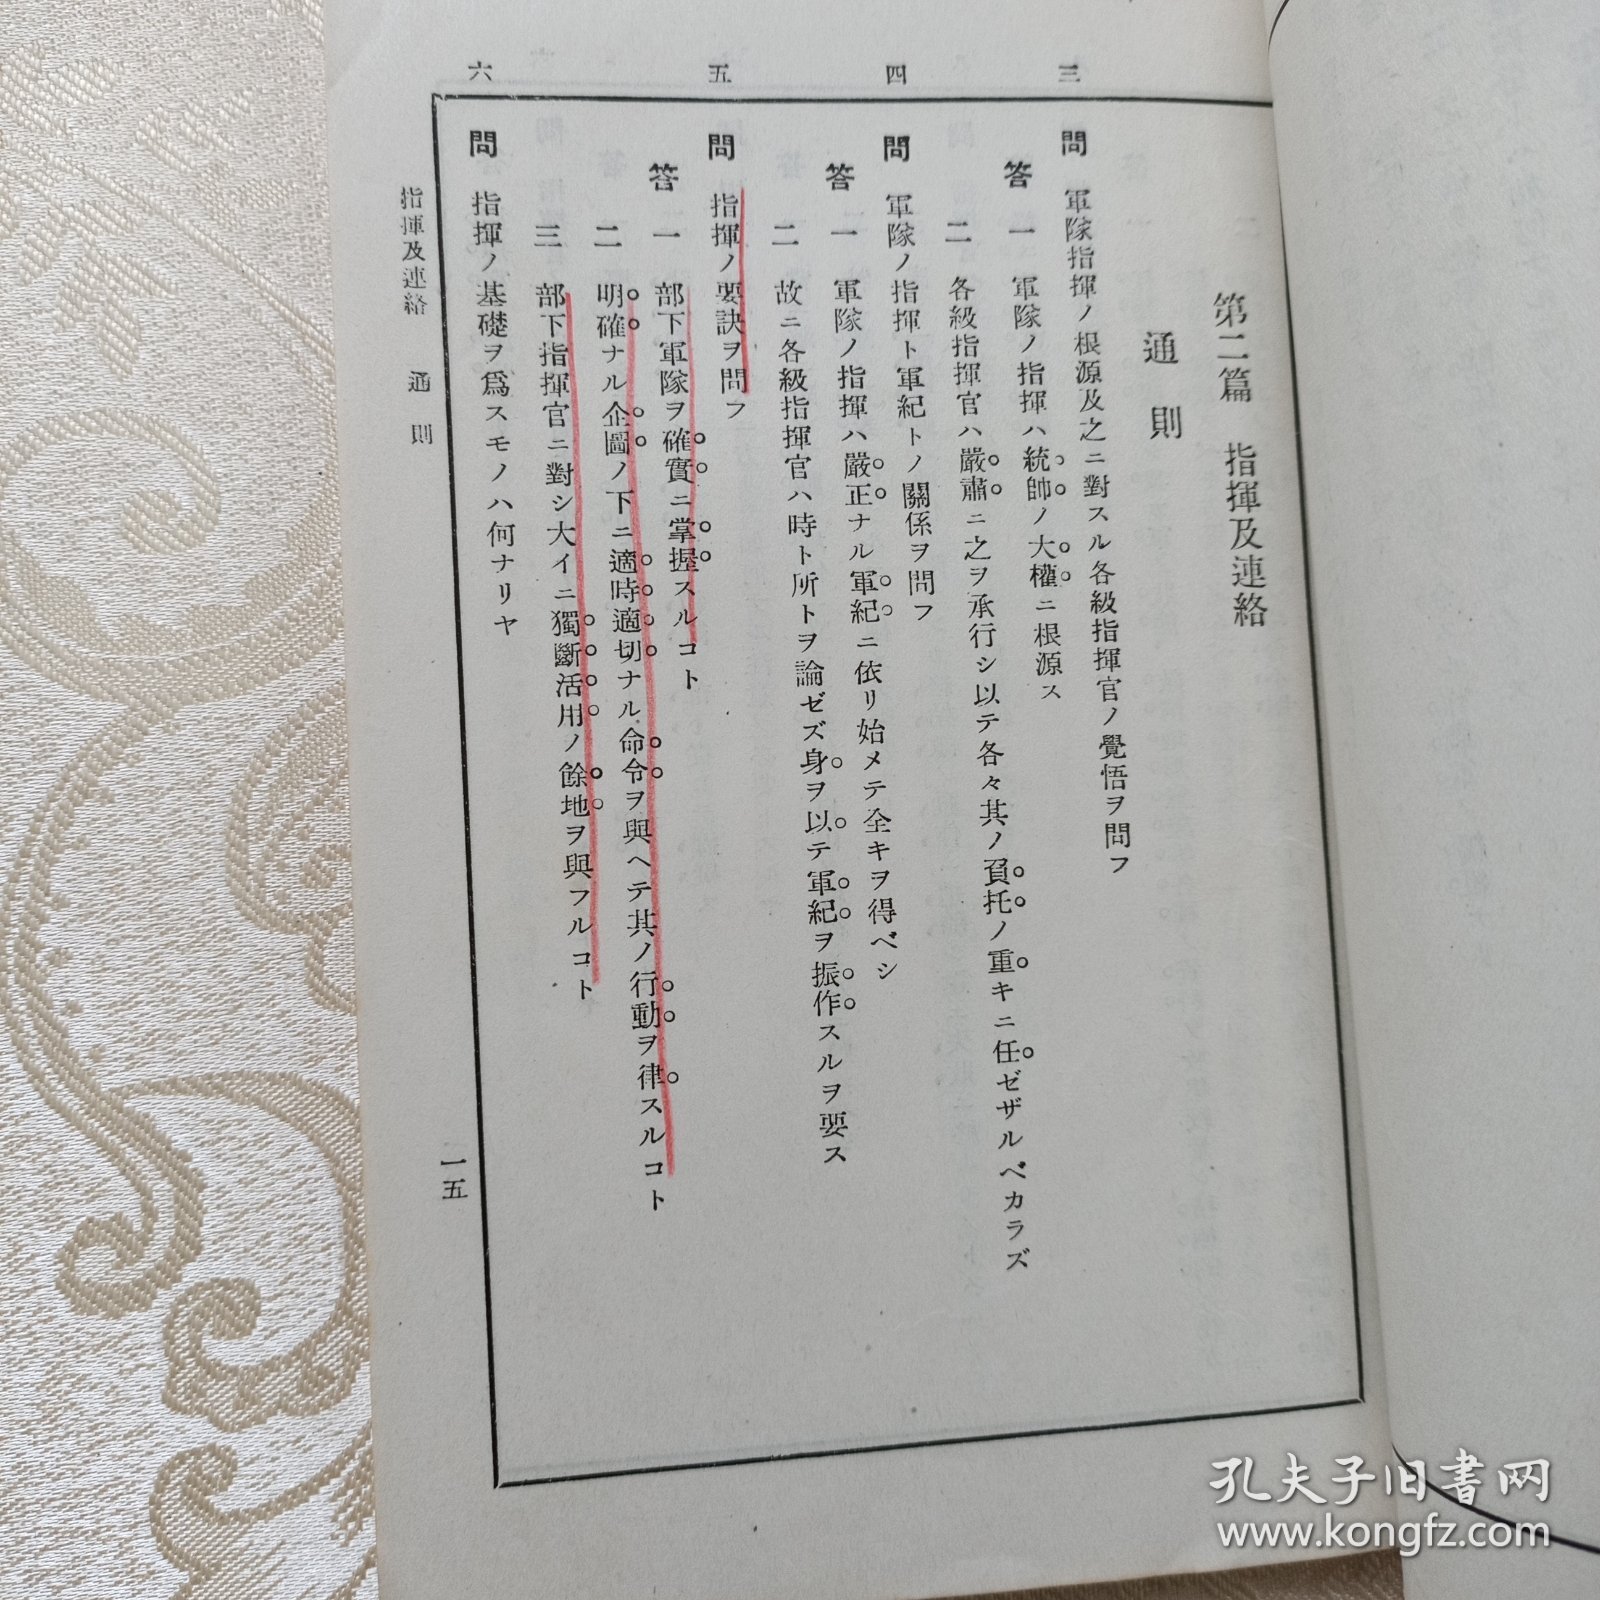 第二篇 指揮及連絡
通則
三
問 軍隊指揮ノ根源及之ニ對スル各級指揮官ノ覺悟ヲ問フ
答 一 軍隊ノ指揮ハ統帥ノ大權ニ根源ス
二 各級指揮官ハ嚴肅ニ之ヲ承行シ以テ各々其ノ負托ノ重キニ任ゼザルベカラズ
四
問 軍隊ノ指揮ト軍紀トノ關係ヲ問フ
答 一 軍隊ノ指揮ハ嚴正ナル軍紀ニ依リ始メテ全キヲ得ベシ
二 故ニ各級指揮官ハ時ト所トヲ論ゼズ身ヲ以テ軍紀ヲ振作スルヲ要ス
五
問 指揮ノ要訣ヲ問フ
答 一 部下軍隊ヲ確實ニ掌握スルコト
二 明確ナル企圖ノ下ニ適時適切ナル命令ヲ與ヘテ其ノ行動ヲ律スルコト
三 部下指揮官ニ對シ大イニ獨斷活用ノ餘地ヲ與フルコト
六
問 指揮ノ基礎ヲ爲スモノハ何ナリヤ
指揮及連絡 通則
一五
孔夫子旧書网
www.kongfz.com